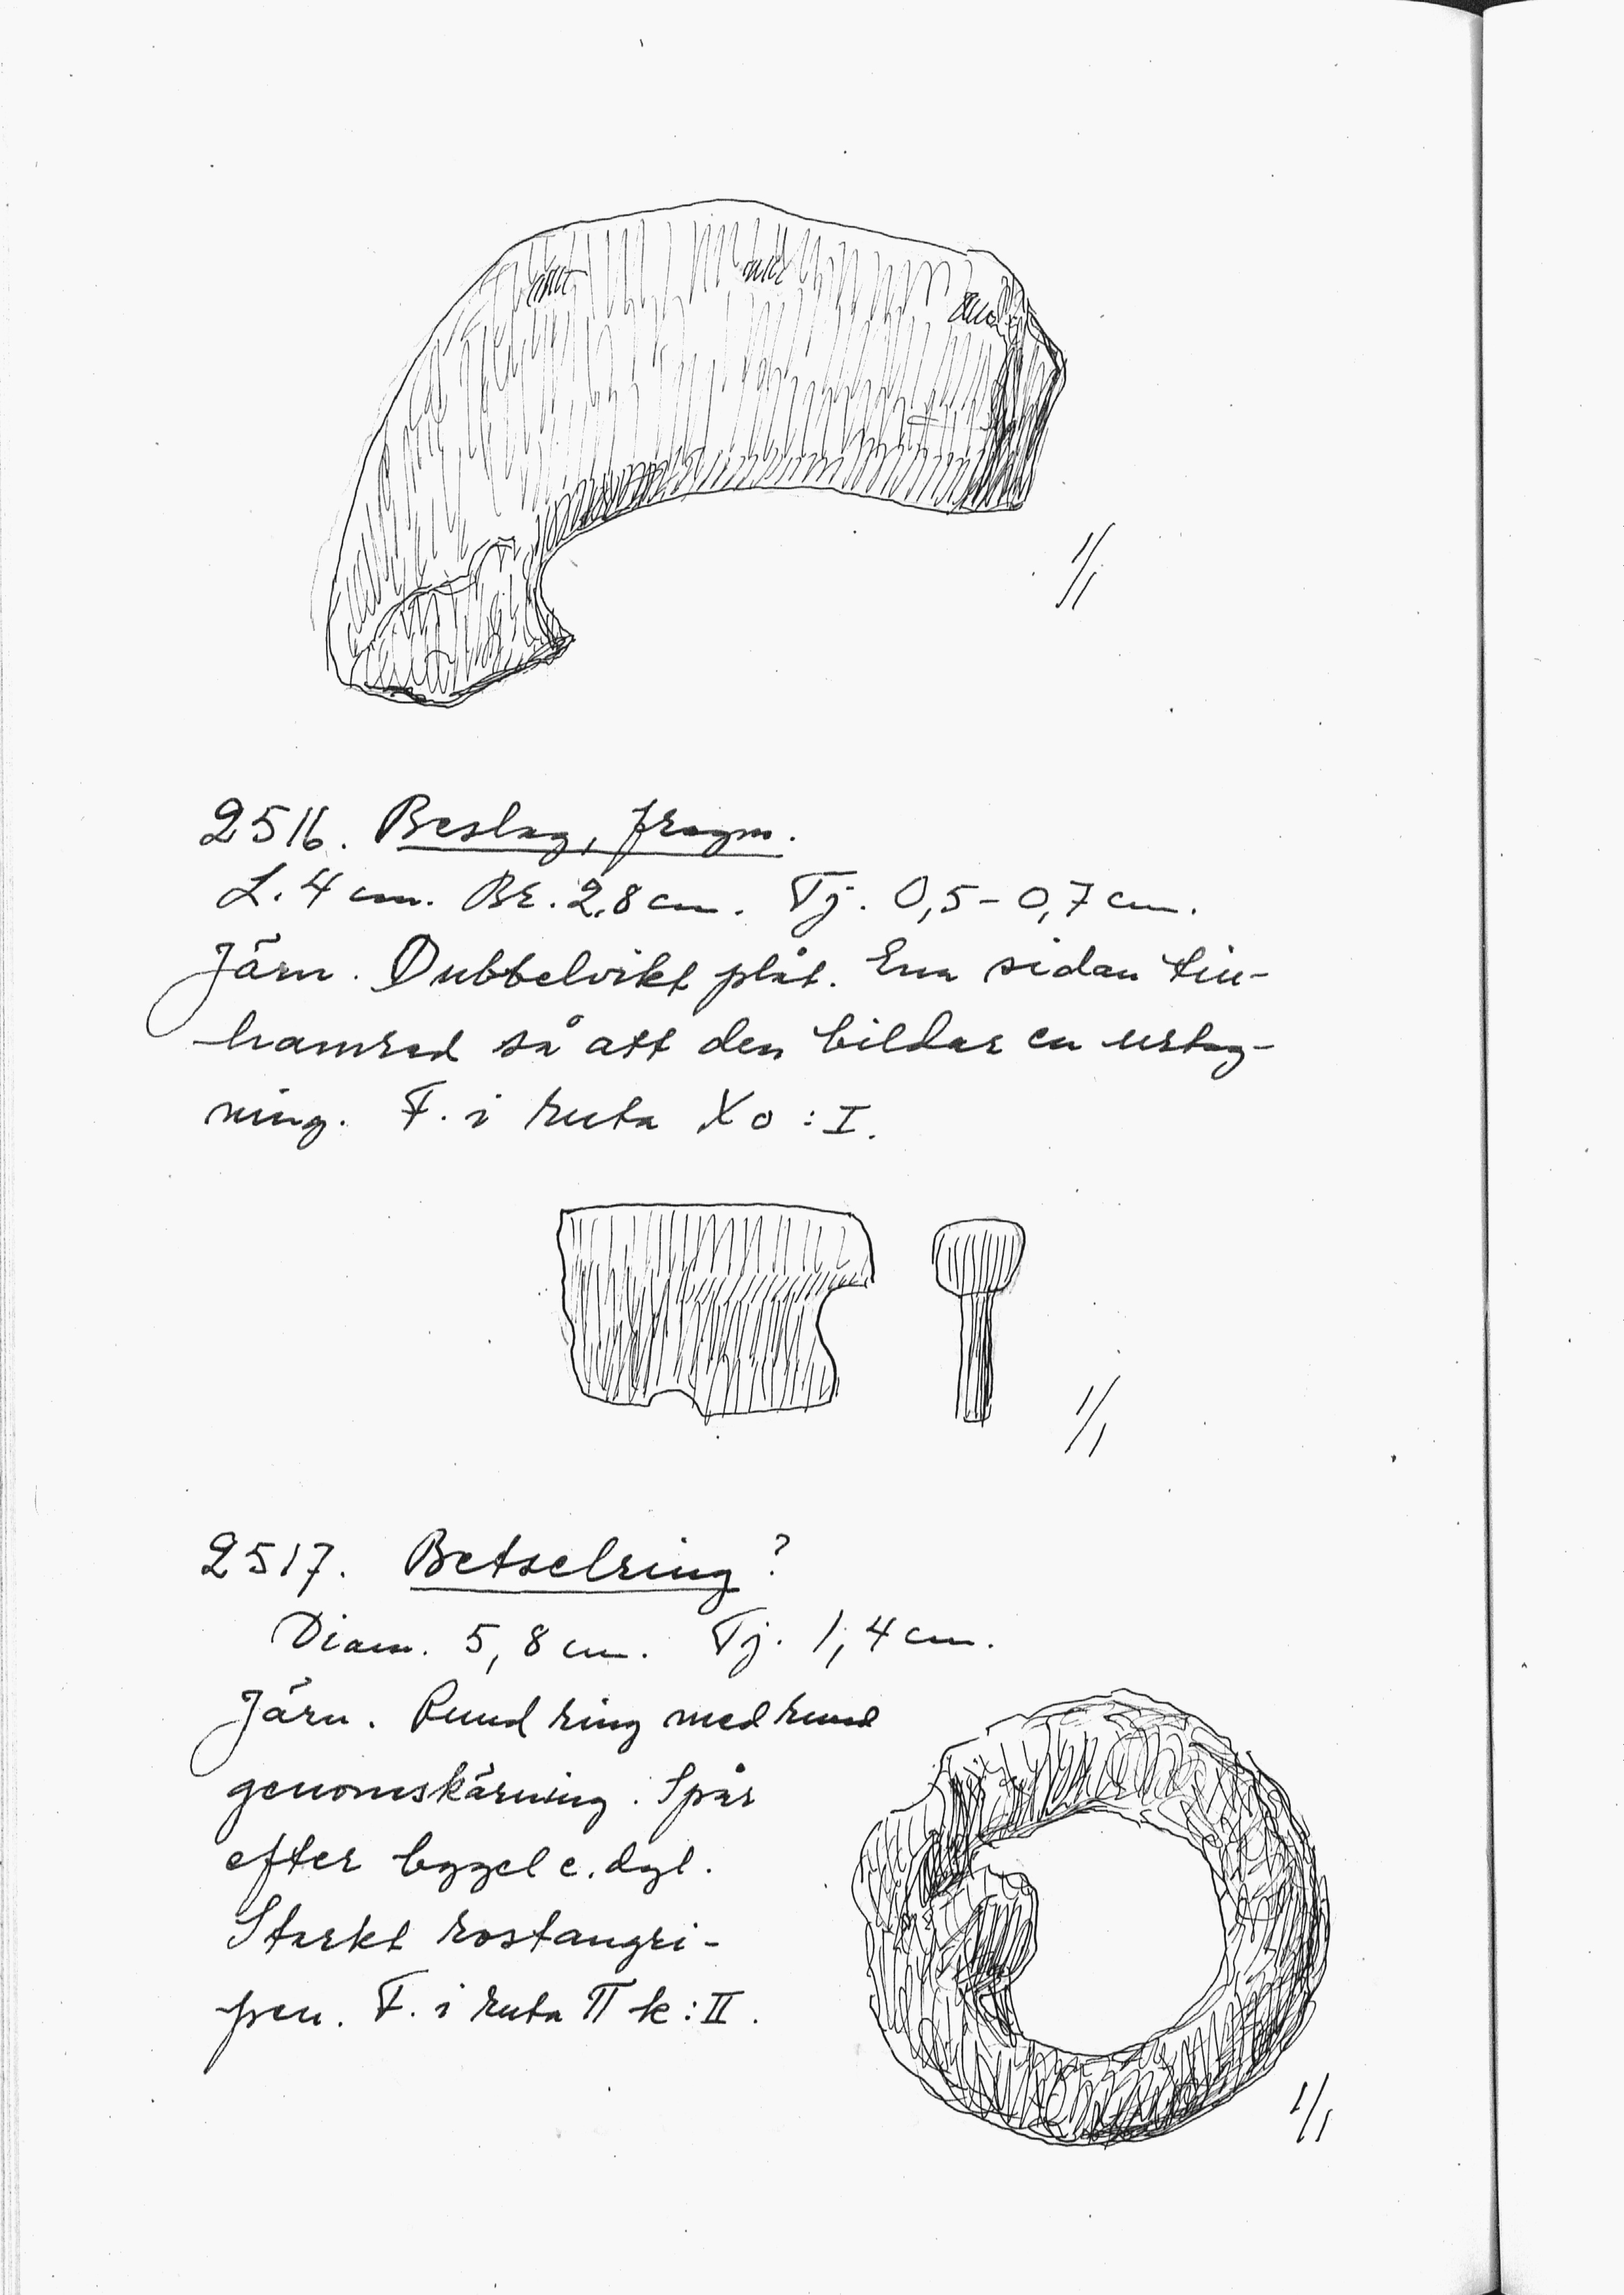 1/1
2516. Beslag, fragm.
L. 4 cm. Br. 2,8 cm. Tj. 0,5-0,7 cm.
Järn. Dubbelvikt plåt. Ena sidan tin-
hamrad så att den bildar en urtag-
ning. F. i ruta X o : I.
1/1
2517. Betselring?
Diam. 5,8 cm. Tj. 1,4 cm.
Järn. Rund ring med rund
genomskärning. Spår
efter bygel e. dyl.
Starkt rostangri-
pen. F. i ruta π k : II.
1/1